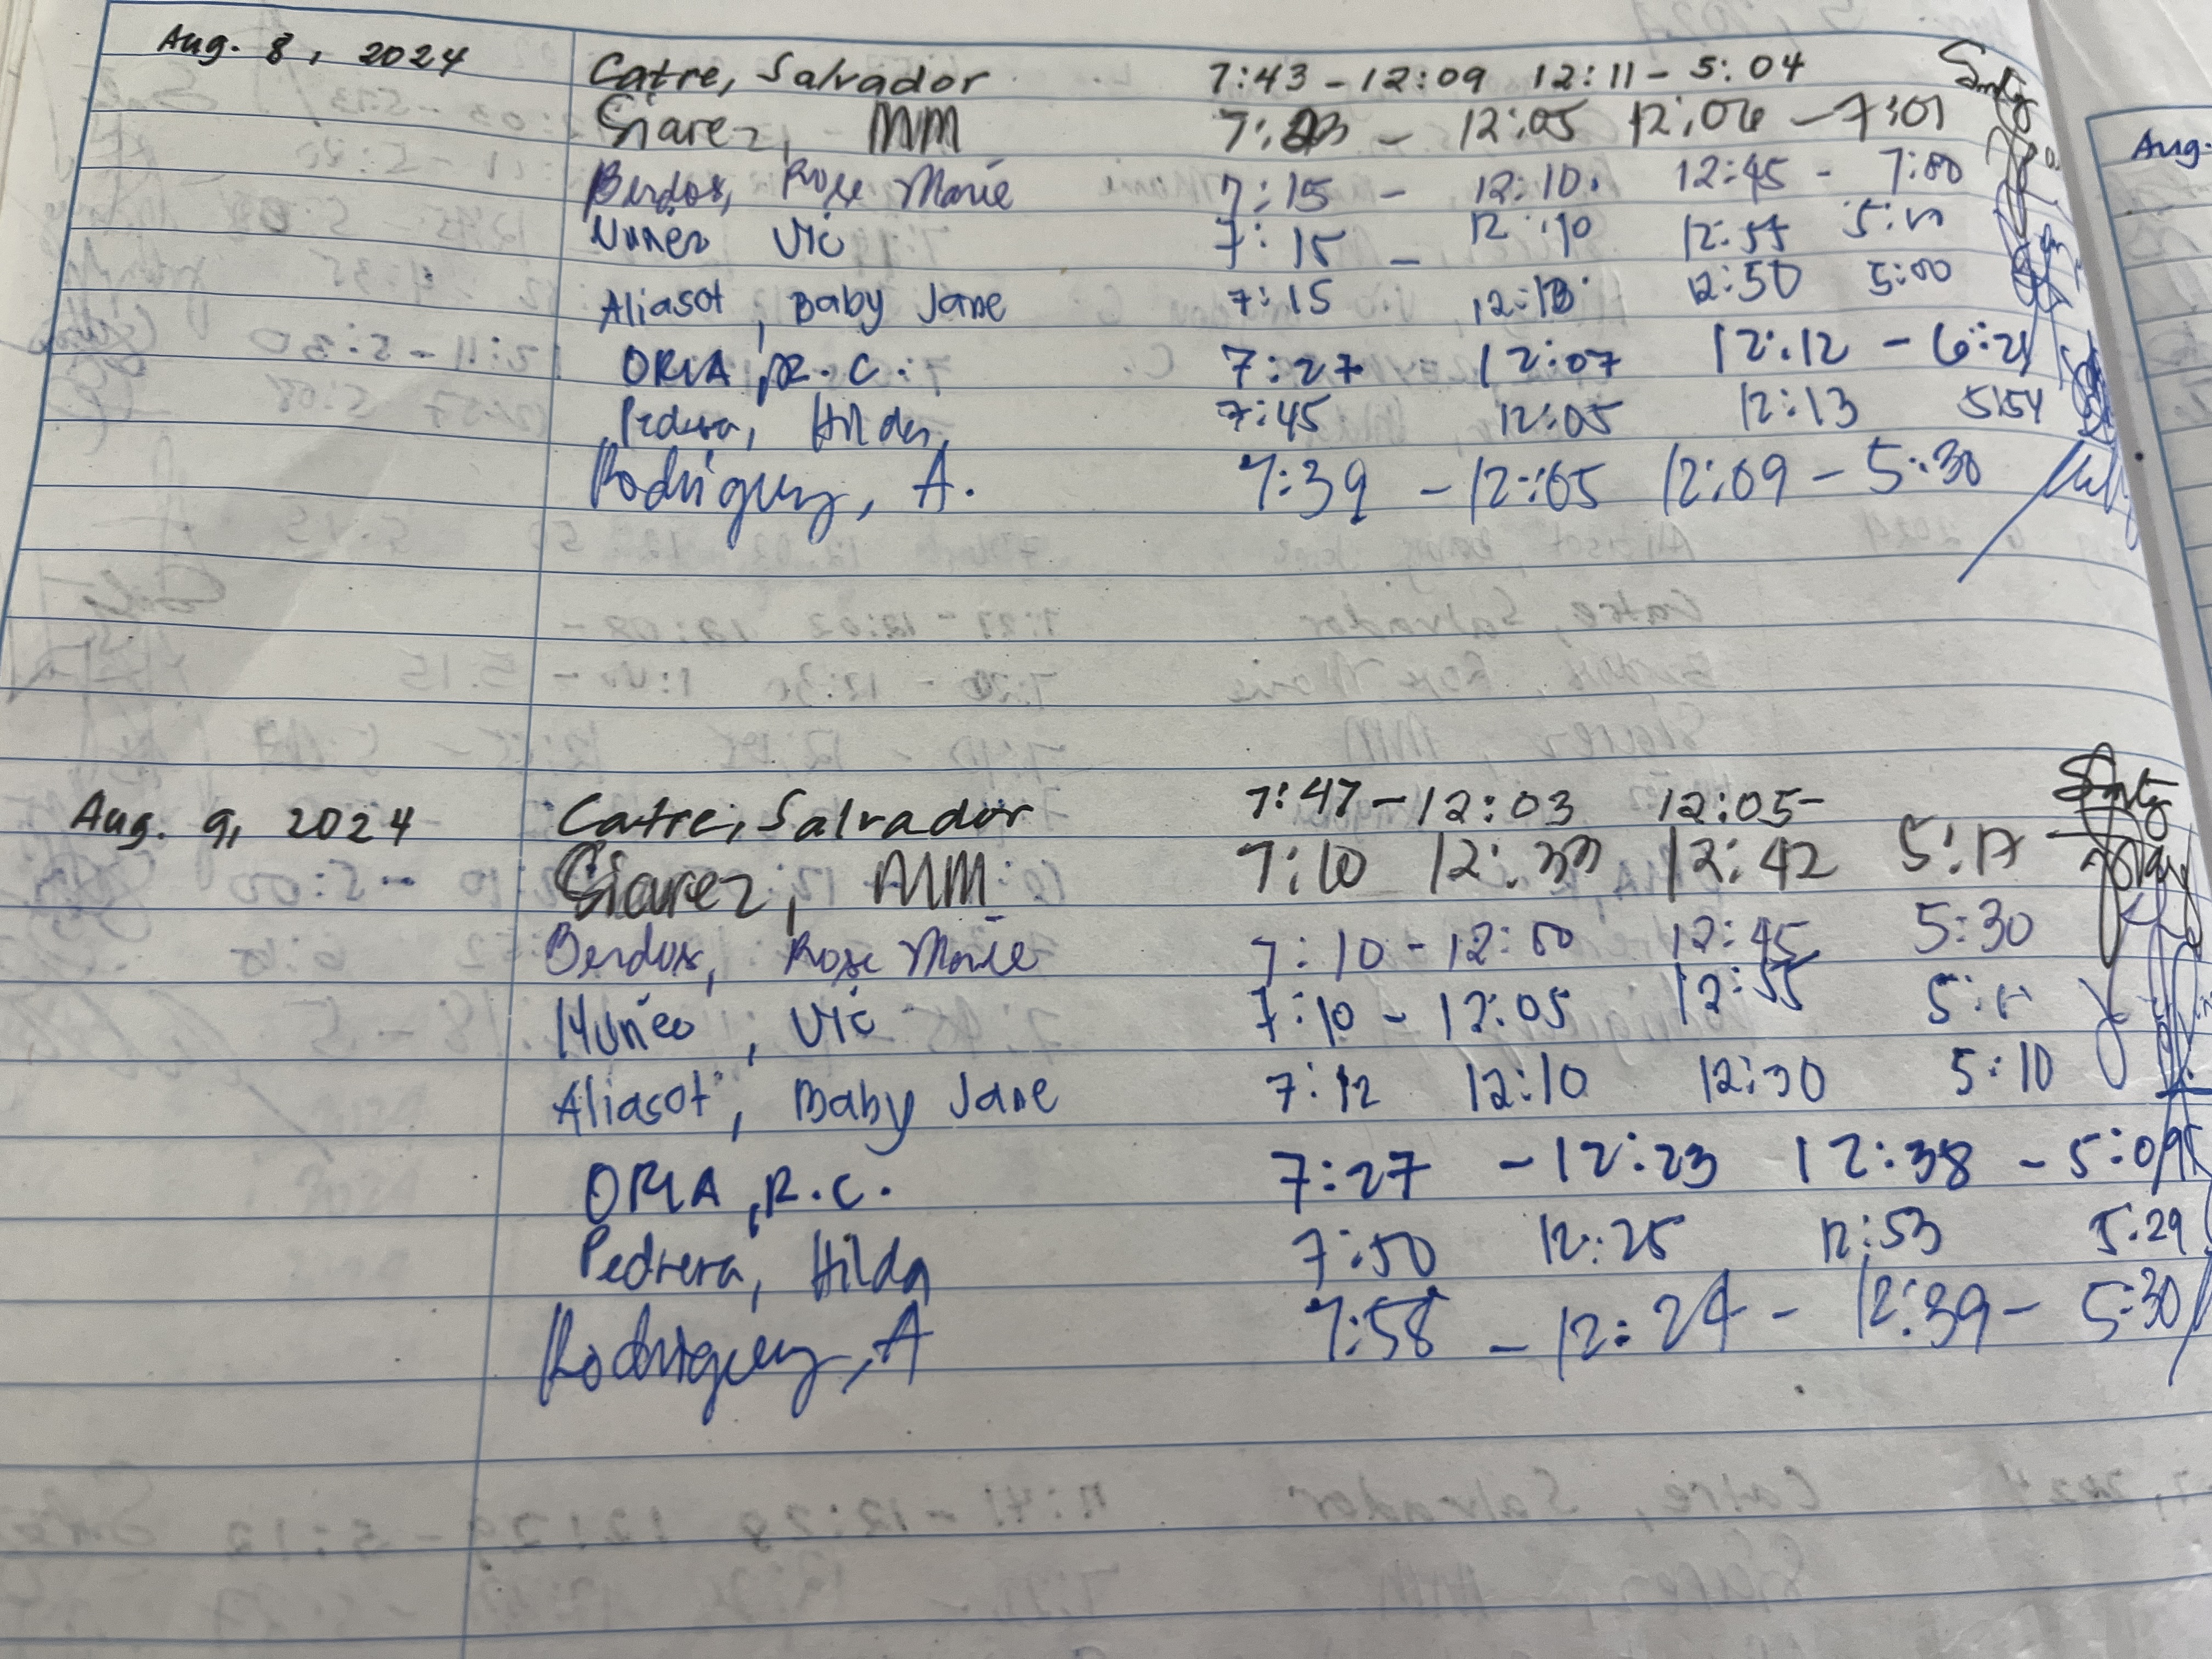 Aug. 8, 2024 Catre, Salvador 7:43 - 12:09 12:11 - 5:04
Siarez, MM - 12:05 12:06 - 7:01
Berdos, Rose Marie 7:15 - 12:10. 12:45 - 7:00
Nuñez Vic 7:15 - 12:10 12:55
Aliasot, Baby Jane 7:15 12:50 5:00
ORIA, R.C. 7:27 12:07 12:12 -
Pedrera, Hilda, 7:45 12:05 12:13 5:54
Rodriguez, A. 7:39 - 12:05 12:09 - 5:30
Aug. 9, 2024 Catre, Salvador 7:47 - 12:03 12:05 -
Siarez, MM 7:10 12:42 5:17
Berdos, Rose Marie 7:10 - 12:00 12:45 5:30
Nuñez, Vic 7:10 - 12:05 12:55
Aliasot, Baby Jane 7:12 12:10 12:30 5:10
ORIA, R.C. 7:27 - 12:23 12:38 - 5:09
Pedrera, Hilda 7:50 12:25 12:53 5:29
Rodriguez, A 7:58 - 12:24 - 12:39 - 5:30
Aug.